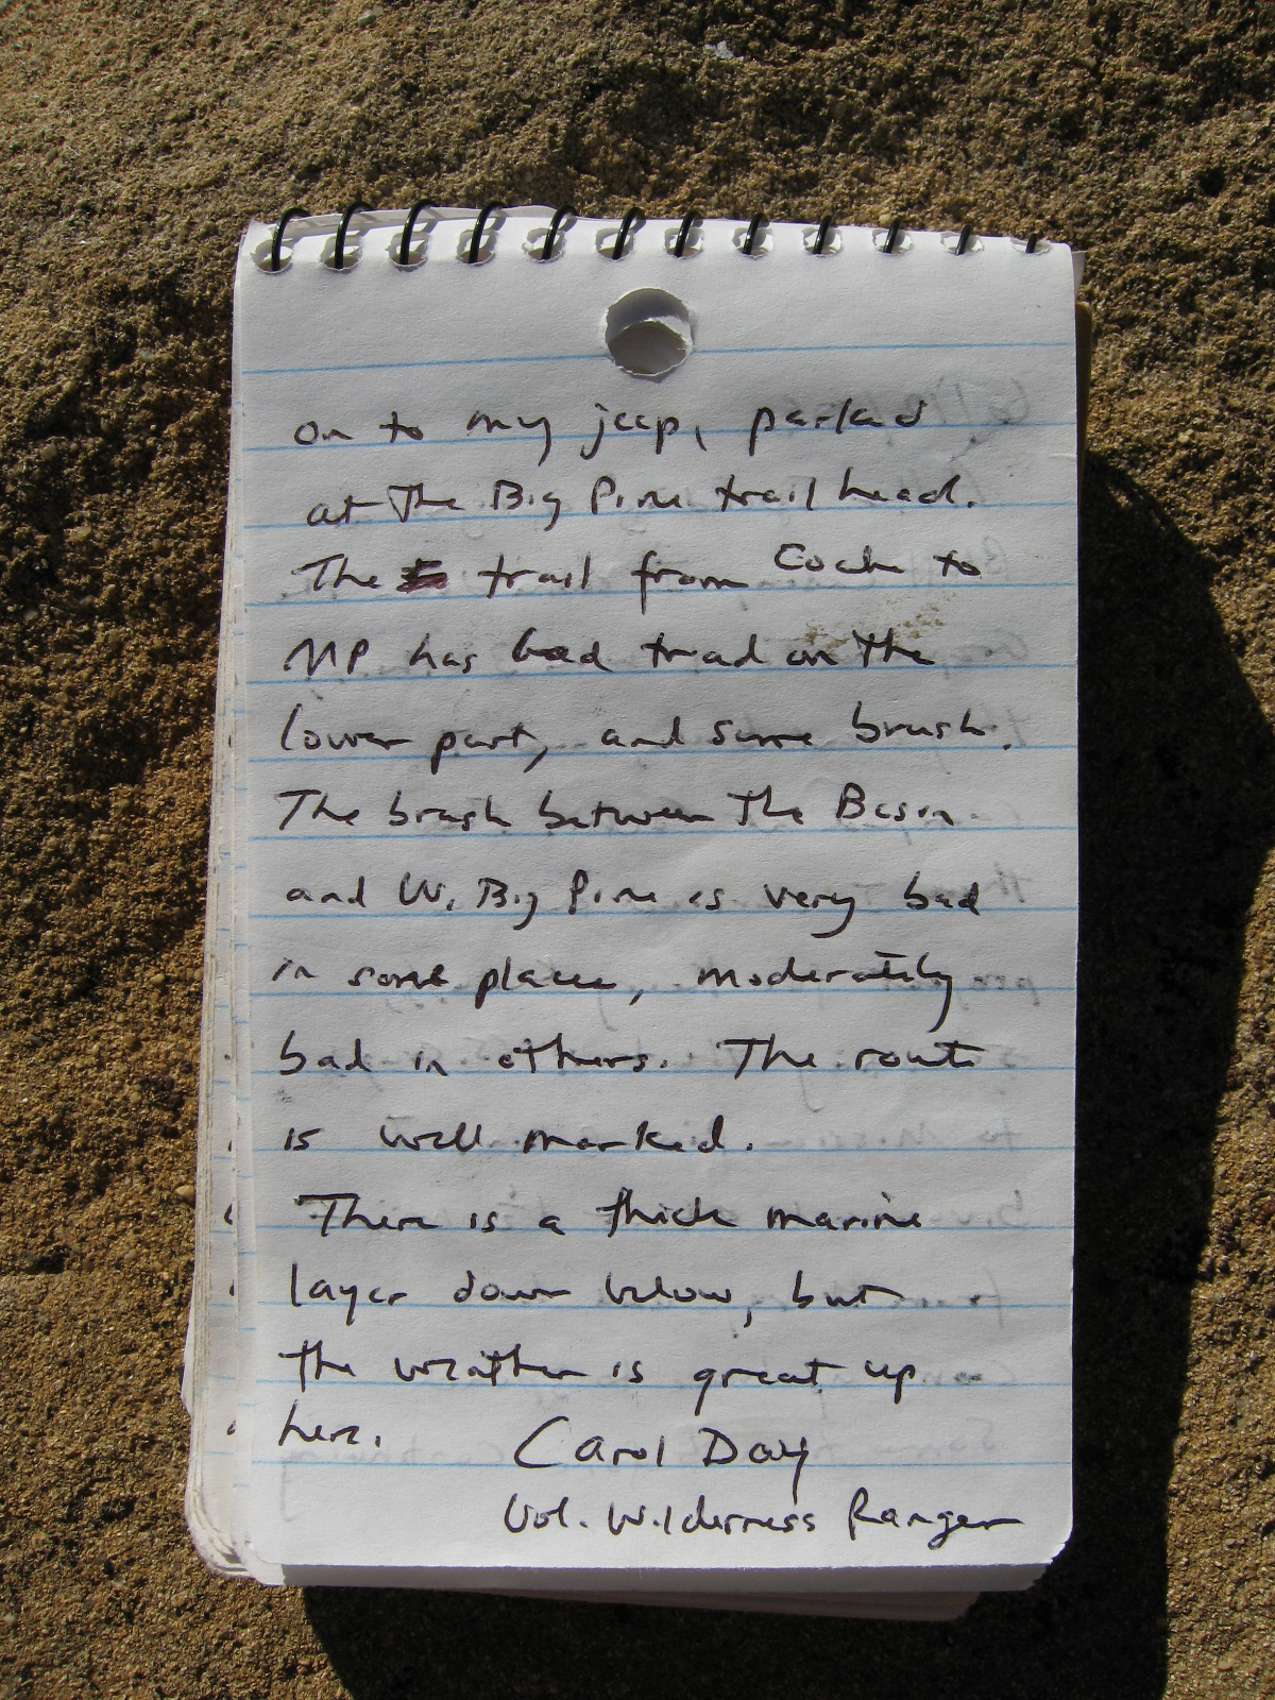 on to my jeep, parked
at The Big Pine trail head.
The trail from Coche to
MP has bad tread on The
lower part, and some brush.
The brush between The Basin
and W. Big Pine is very bad
in some places, moderately
bad in others. The route
is well marked.
There is a thick marine
layer down below, but
the weather is great up
here. Carol Day
Vol. Wilderness Ranger